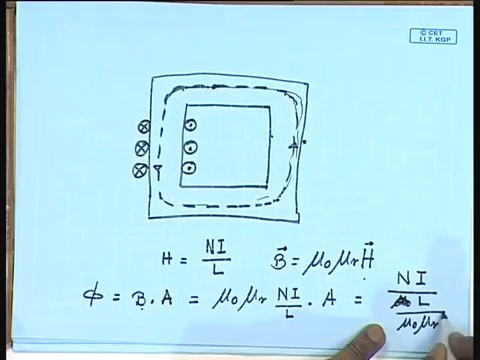 © CET
I.I.T. KGP
H = NI/L    B⃗ = μ₀μᵣH⃗
ϕ = B . A = μ₀μᵣ NI/L . A = NI / (L / μ₀μᵣ